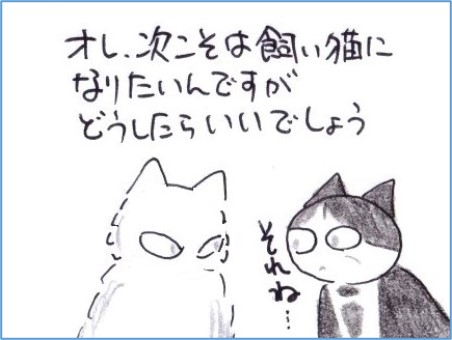 オレ、次こそは飼い猫に
なりたいんですが
どうしたらいいでしょう
それね…